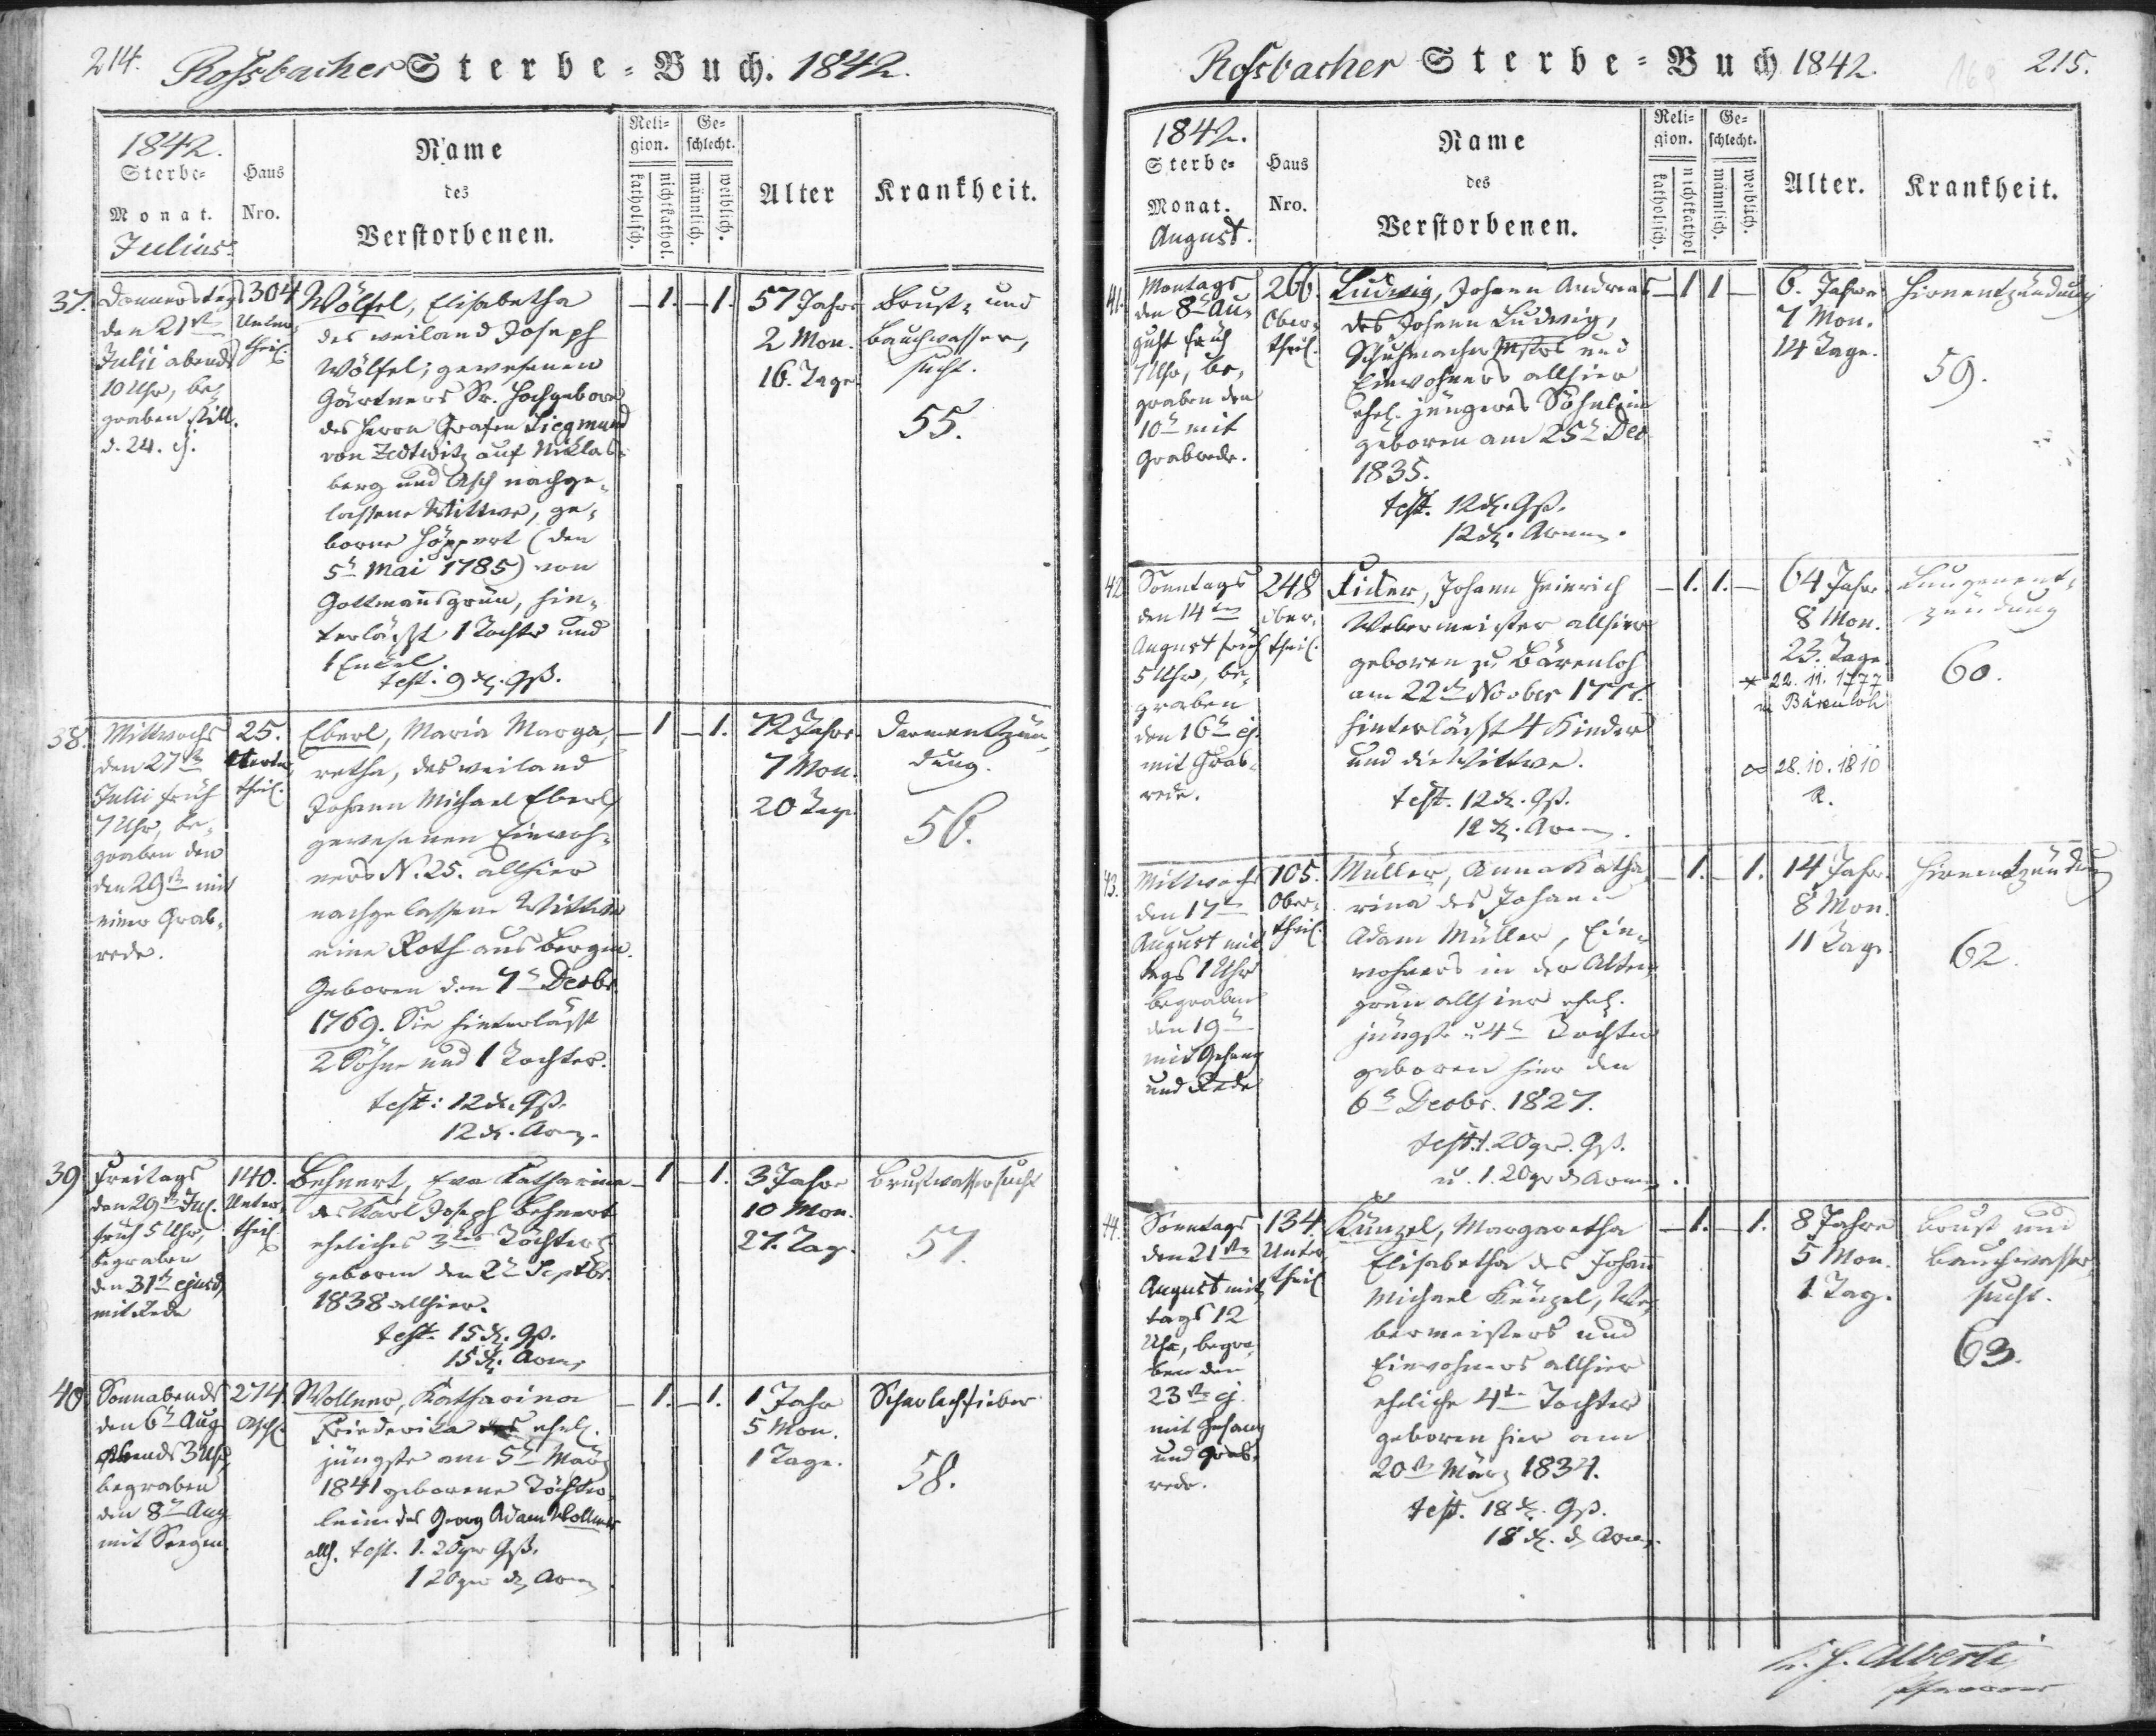 214.
Roßbacher Sterbe-Buch. 1842.
1842.
Sterbe-
Monat.
Julius.
Haus
Nro.
Name
des
Verstorbenen.
Reli-
gion.
katholisch.
nichtkathol.
Ge-
schlecht.
männlich.
weiblich.
Alter
Krankheit.
37.
Donnerstags
den 21ten
Julii abends
10 Uhr, be-
graben still.
d. 24. ej.
304
Unter-
theil.
Wölfel, Elisabetha
des weiland Joseph
Wölfel, gewesenen
Gärtners Sr. Hochgebor.
des Herrn Grafen Siegmund
von Zedtwitz auf Niklas-
berg und Asch nachge-
lassene Wittwe, ge-
borne Höppert (den
5t Mai 1785) von
Gottmannsgrün, hin-
terläßt 1 Tochter und
1 Enkel.
test. 9 x. Gß.
1.
1.
57 Jahre
2 Mon.
16. Tage.
Brust- und
Bauchwasser-
sucht.
55.
38.
Mittwochs
den 27t
Julii früh
7 Uhr, be-
graben den
den 29t mit
einer Grab-
rede.
25.
theil.
Eberl, Maria Marga-
retha, des weiland
Johann Michael Eberl,
gewesenen Einwoh-
ners N. 25. allhier
nachgelassene Wittwe
eine Roth aus Bergen.
Geboren den 7t Decbr.
1769. Sie hinterläßt
2 Söhne und 1 Tochter.
test: 12 x. Gß.
12 x. Arm.
1
1.
72 Jahre
7 Mon.
20 Tage
Darmentzün-
dung.
56.
39
Freitags
den 29t Jul.
früh 5 Uhr,
begraben
den 31t ejusd.
mit Rede
140.
Unter-
theil.
Behnert, Eva Katharina
des Karl Joseph Behnert
eheliches 3tes Töchterl.
geboren den 2t Septbr.
1838 allhier.
test. 15 x. Gß.
15 x. Arm.
1
1.
3 Jahre
10 Mon.
27. Tag.
Brustwassersucht
57.
40
Sonnabends
den 6t Aug
Abends 3 Uhr
begraben
den 8t Aug.
mit Seegen
274.
Asch.
Wollner, Katharina
Friederika des ehel.
jüngste am 5t März
1841 geborene Töchter-
lein des Georg Adam Wollner
allh. test. 1. 20 gr Gß.
1 20 gr d. Arm
1.
1.
1 Jahr
5 Mon.
1 Tage.
Scharlachfieber
58.
Roßbacher Sterbe-Buch 1842.
169
215.
1842.
Sterbe-
Monat.
August.
Haus
Nro.
Name
des
Verstorbenen.
Reli-
gion.
katholisch.
nichtkathol
Ge-
schlecht.
männlich.
weiblich.
Alter.
Krankheit.
41.
Montags
den 8t Au-
gust früh
7 Uhr, be-
graben den
10t mit
Grabrede.
266.
Ober-
theil.
Ludwig, Johann Andreas
des Johann Ludwig,
Schuhmacher Mstrs und
Einwohners allhier
ehel. jüngeres Söhnlein
geboren am 25t Dec.
1835.
test. 12 x. Gß.
12 x. Armen.
1
1
6. Jahre
7 Mon.
14 Tage.
Hirnentzündung
59.
42
Sonntags
den 14ten
August früh
5 Uhr, be-
graben
den 16t ej.
mit Grab-
rede.
248
Ober-
theil.
Fider, Johann Heinrich
Webermeister allhier
geboren zu Bärenloh
am 22t Novber 1777.
hinterläßt 4 Kinder
und die Wittwe.
test. 12 x. Gß.
12 x. Arm.
1.
1.
64 Jahr
8 Mon.
23. Tage
* 22. 11. 1777
in Bärenloh
∞ 28. 10. 1810
R.
Lungenent-
zündung
60.
43.
Mittwochs
den 17ten
August mit-
tags 1 Uhr
begraben
den 19t
mit Gesang
und Rede
105.
Ober-
theil.
Müller, Anna Katha-
rina des Johann
Adam Müller, Ein-
wohners in der Alten-
grün allhier ehel.
jüngste u. 4t Tochter
geboren hier den
6t Decbr. 1827.
test. 1. 20 gr. Gß.
u. 1. 20 gr d. Armen.
1.
1.
14 Jahr
8 Mon.
11 Tage.
Hirnentzündung
62.
44.
Sonntags
den 21ten
August mit-
tags 12
Uhr, begra-
ben den
23t ej.
mit Gesang
und Grab-
rede.
134.
Unter
theil
Künzel, Margaretha
Elisabetha des Johann
Michael Künzel, We-
bermeisters und
Einwohners allhier
eheliche 4te Tochter
geboren hier am
20t März 1834.
test. 18 x. Gß.
18 x. d. Arm.
1.
1.
8 Jahre
5 Mon.
1 Tag.
Brust und
Bauchwasser-
sucht.
63.
Alberti
Pfarrer